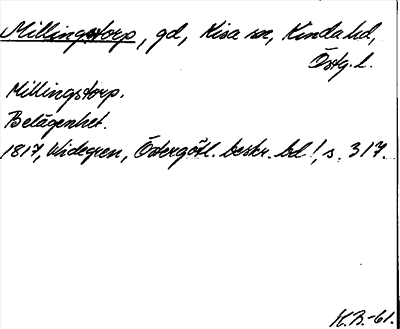 Millingstorp, gd, Kisa sn, Kinda hd,
Östg. l.
Millingstorp.
Belägenhet.
1817, Widegren, Östergötl. beskr. bd 1, s. 317.
K.B.-61.